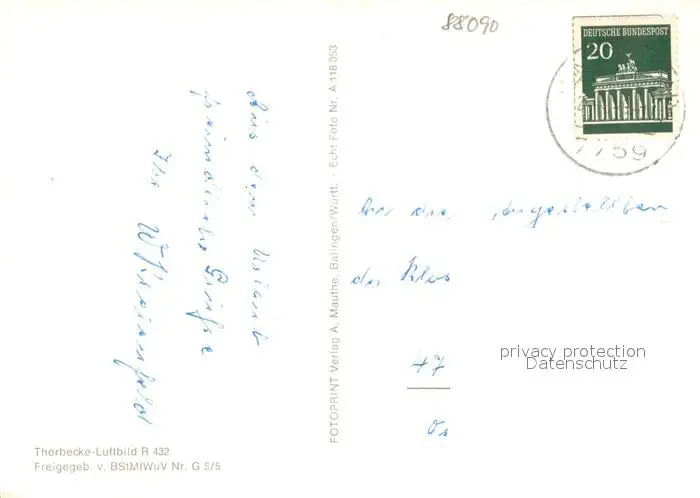 88090
DEUTSCHE BUNDESPOST
20
7759
Aus dem Urlaub
freundliche Grüße
Ihr
FOTOPRINT Verlag A. Mauthe, Balingen/Württ. · Echt Foto Nr. A 118 053
An die Angestellten
der Klos
47
Os
privacy protection
Datenschutz
Thorbecke-Luftbild R 432
Freigegeb. v. BStMIWuV Nr. G 5/5